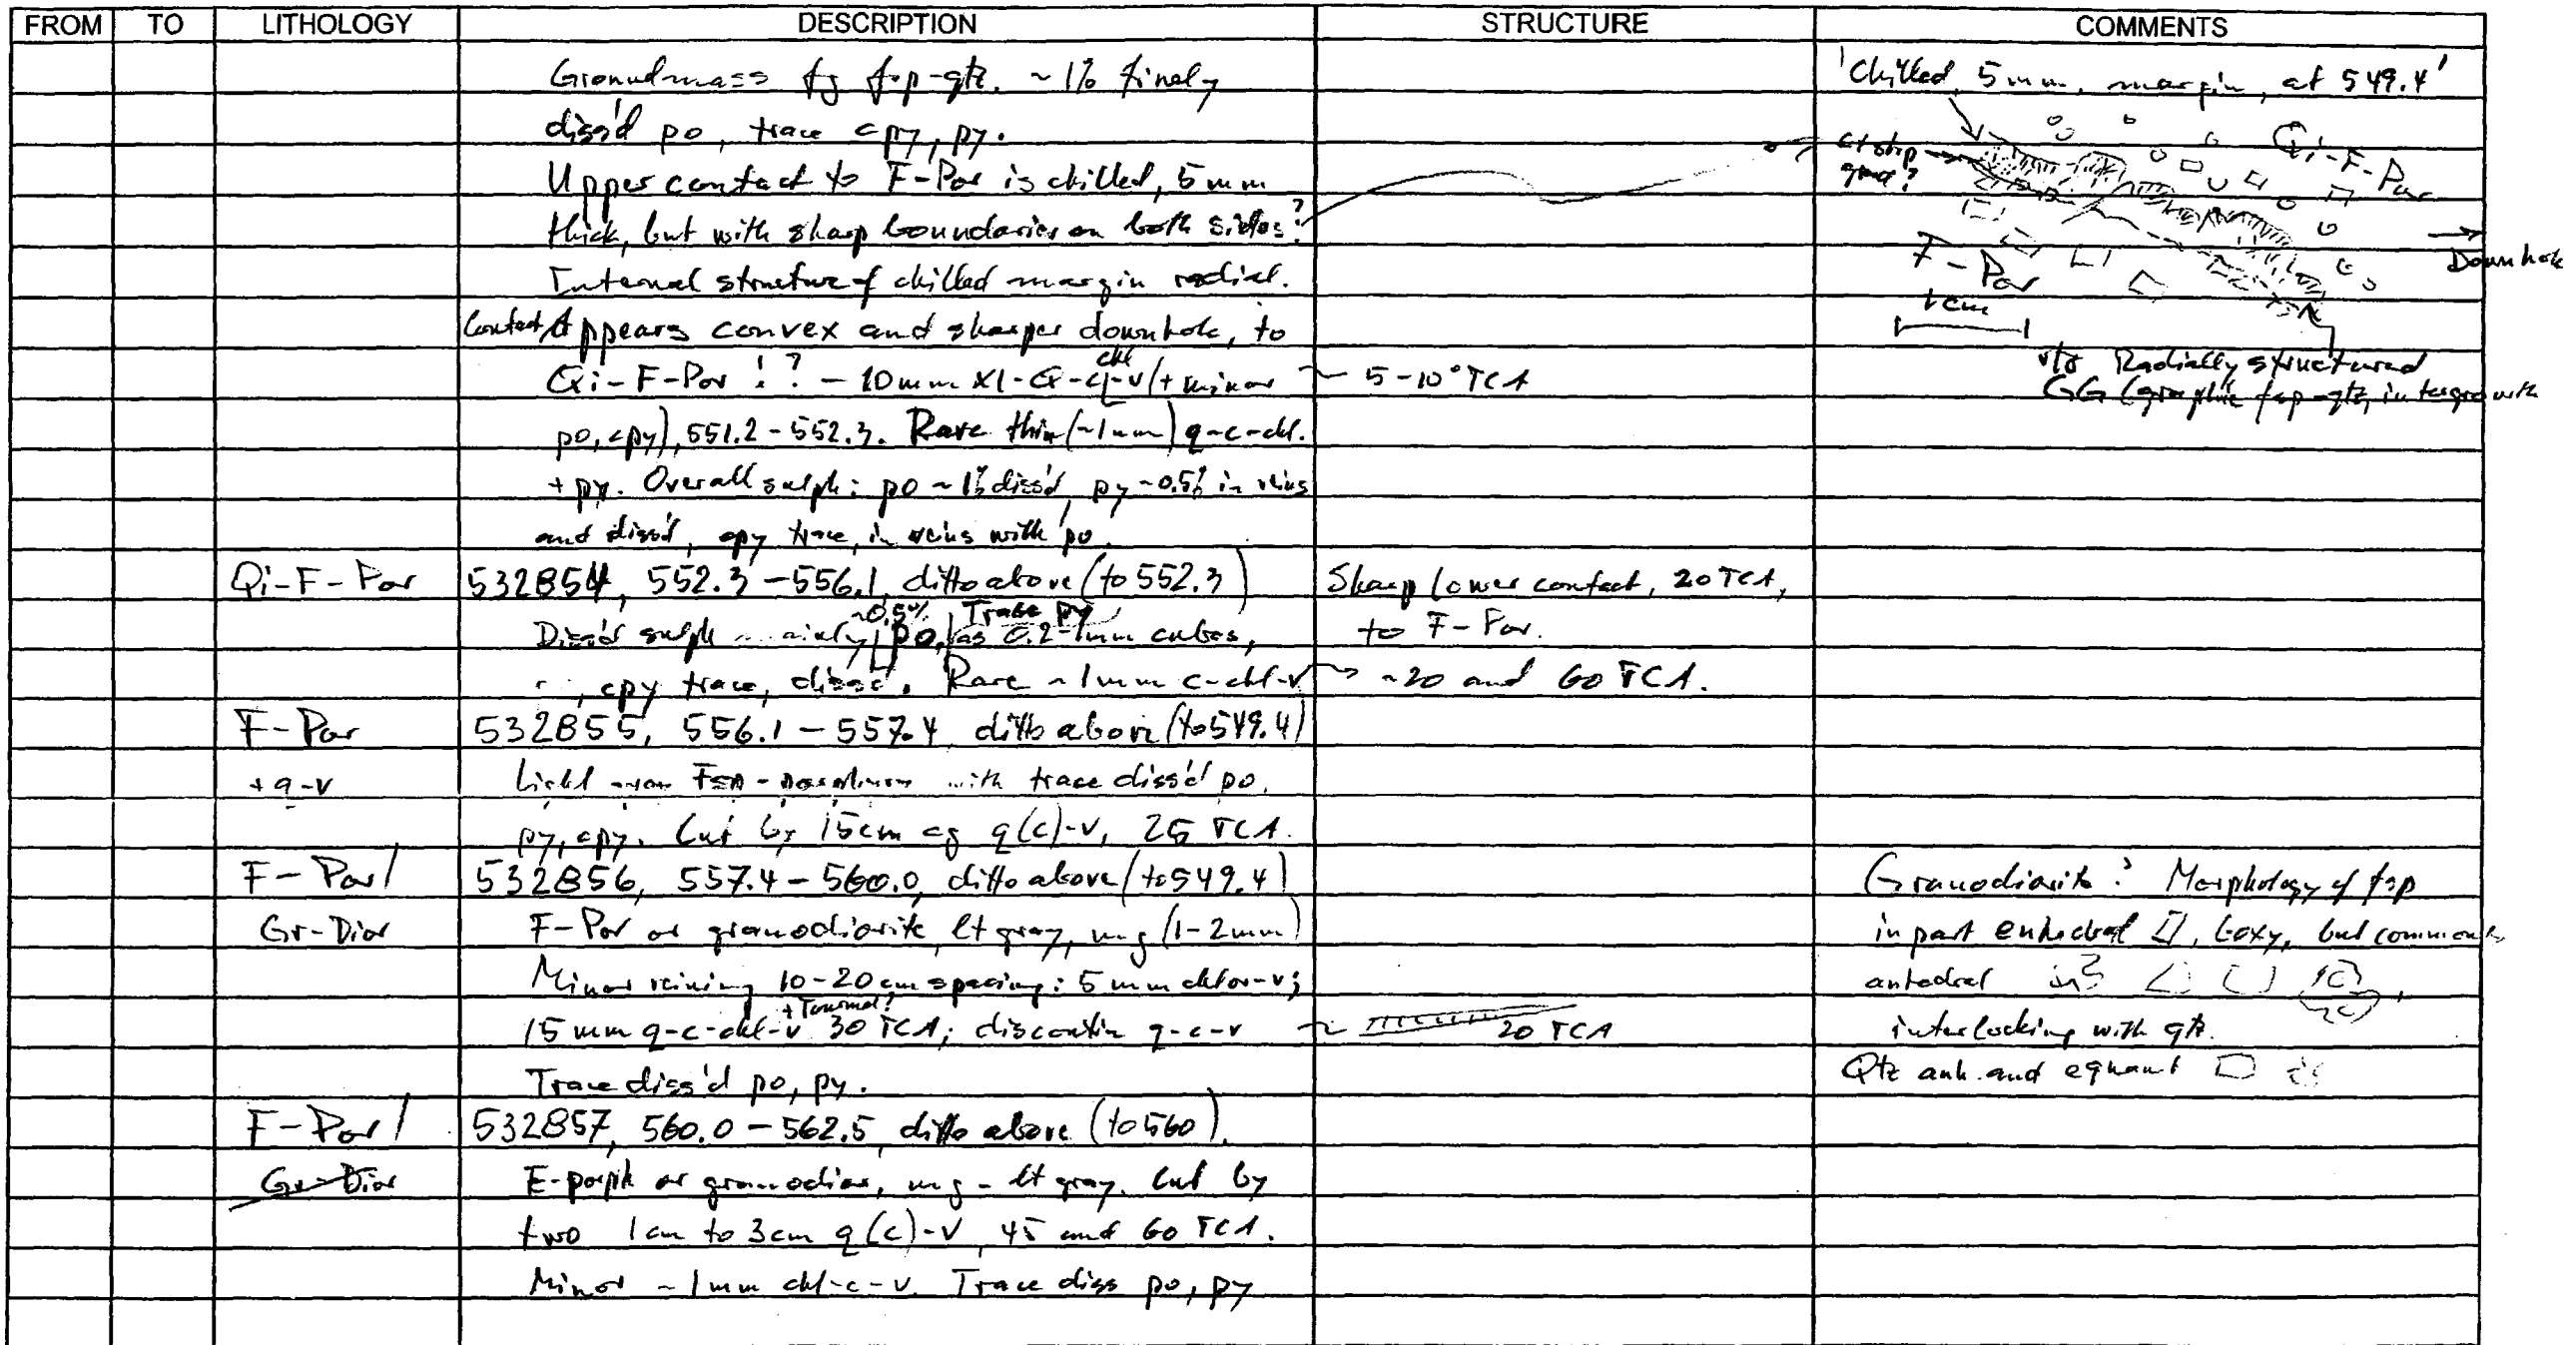 FROM TO LITHOLOGY DESCRIPTION STRUCTURE COMMENTS
Groundmass fg fsp-qtz. ~1% finely
diss'd po, trace cpy, py.
Upper contact to F-Por is chilled, 5mm
thick, but with sharp boundaries on both sides?
Internal structure of chilled margin radial.
Contact Appears convex and sharper downhole, to
Qi-F-Por!? - 10mm Xl-Q-c-chl-v (+ minor ~ 5-10° TCA
po, cpy), 551.2-552.3. Rare thin (~1mm) q-c-chl.
+ py. Overall sulph: po ~1% diss'd, py ~0.5% in veins
and diss'd, cpy trace, in veins with po.
'Chilled, 5mm, margin, at 549.4'
Qi-F-Por
F-Por
Downhole
1cm
Radially structured
GG (graphic fsp-qtz intergrowth
Qi-F-Por 532854, 552.3-556.1, ditto above (to 552.3) Sharp lower contact, 20 TCA,
Diss'd sulph mainly ~0.5% po, Trace py as 0.2-1mm cubes, to F-Por.
cpy trace, diss'd. Rare ~1mm c-chl-v ~20 and 60 TCA.
F-Por 532855, 556.1-557.4 ditto above (to 549.4)
+q-v Light with trace diss'd po,
py, cpy. Cut by 15cm cg q(c)-v, 25 TCA.
F-Por/ 532856, 557.4-560.0, ditto above (to 549.4) Granodiorite? Morphology of fsp
Gr-Dior F-Por or granodiorite, lt gray, mg (1-2mm) in part euhedral, boxy, but commonly
Minor veining 10-20 cm spacing: 5mm chlor-v; anhedral
15mm q-c-chl-v + Tourmal? 30 TCA; discontin q-c-v ~ 20 TCA interlocking with qtz.
Trace diss'd po, py. Qtz anh. and equant
F-Por/ 532857, 560.0-562.5, ditto above (to 560).
Gr-Dior F-porph or granodior, mg - lt gray. Cut by
two 1cm to 3cm q(c)-v, 45 and 60 TCA.
Minor ~1mm chl-c-v. Trace diss po, py